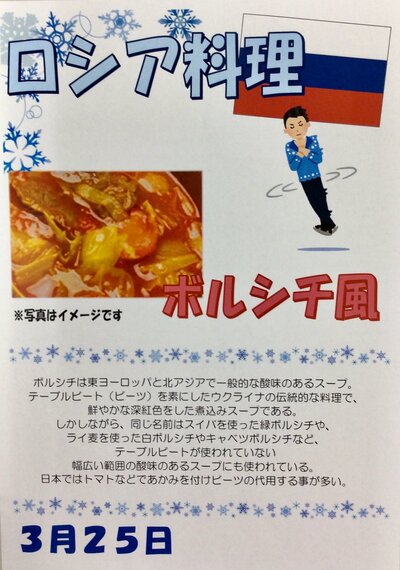 ロシア料理
※写真はイメージです
ボルシチ風
ボルシチは東ヨーロッパと北アジアで一般的な酸味のあるスープ。
テーブルビート（ビーツ）を素にしたウクライナの伝統的な料理で、
鮮やかな深紅色をした煮込みスープである。
しかしながら、同じ名前はスイバを使った緑ボルシチや、
ライ麦を使った白ボルシチやキャベツボルシチなど、
テーブルビートが使われていない
幅広い範囲の酸味のあるスープにも使われている。
日本ではトマトなどであかみを付けビーツの代用する事が多い。
3月25日